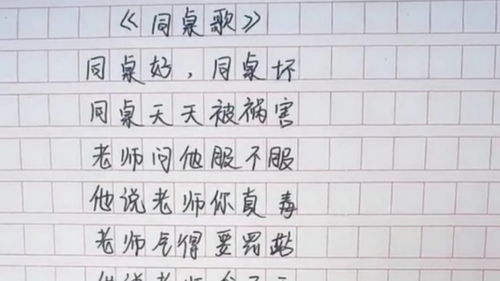 《同桌歌》
同桌好，同桌坏
同桌天天被祸害
老师问他服不服
他说老师你真毒
老师气得要罚站
他说老师